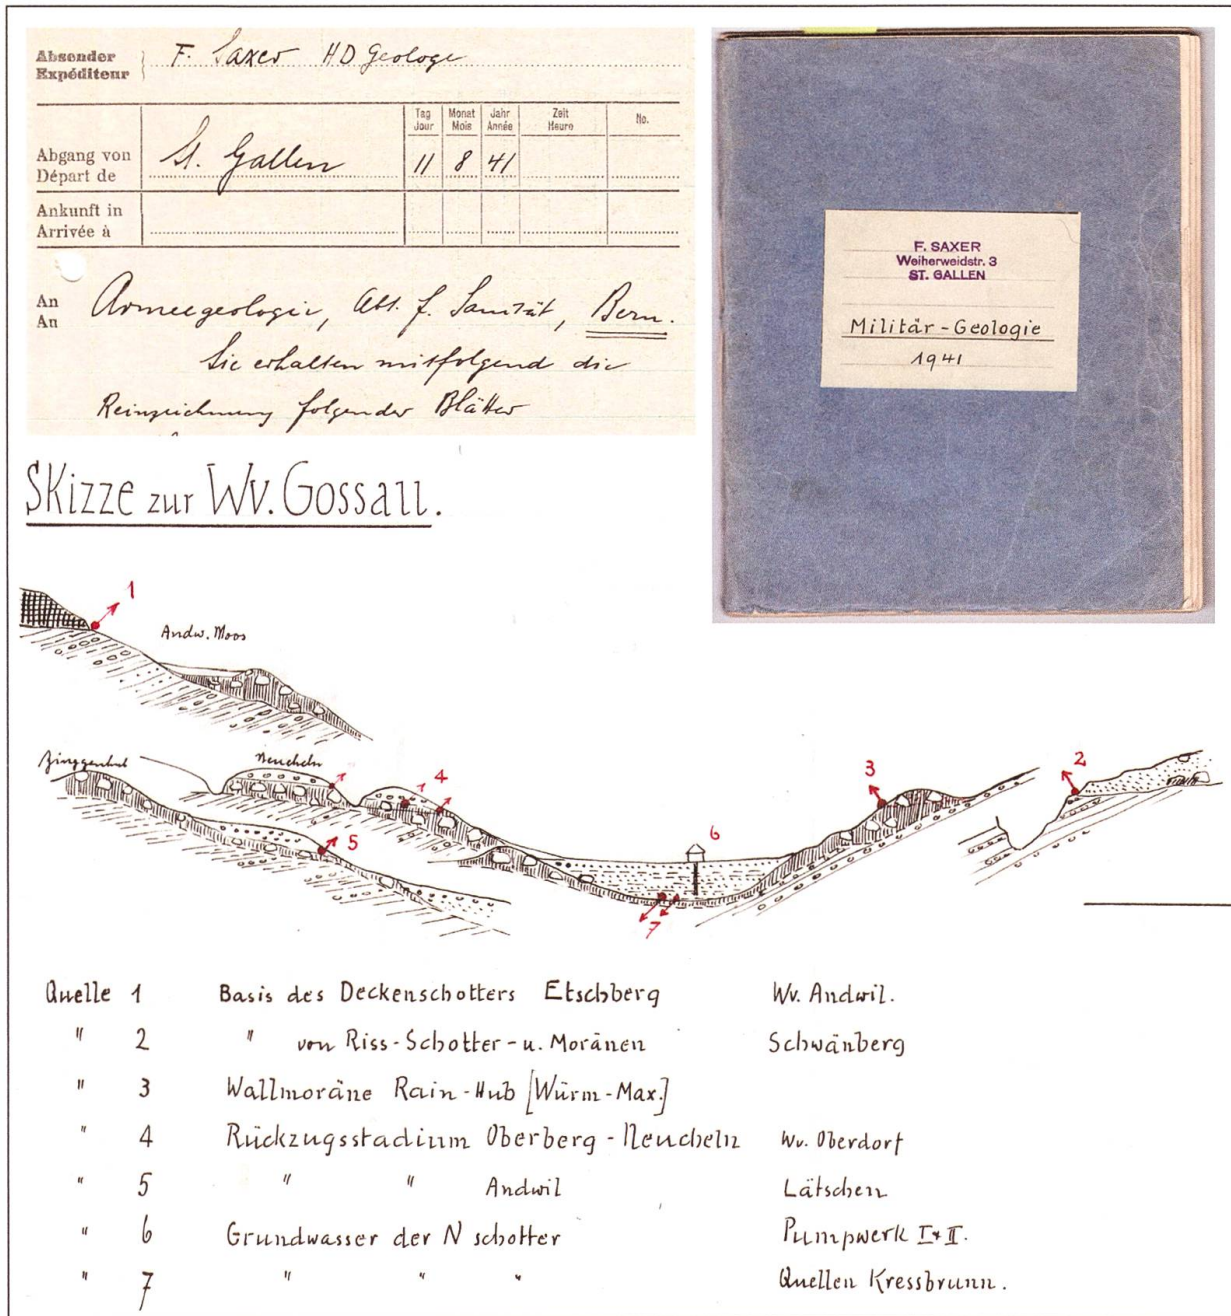 Absender
Expéditeur
F. Saxer HD Geologe
Tag
Jour
Monat
Mois
Jahr
Année
Zeit
Heure
No.
Abgang von
Départ de
St. Gallen
11 8 41
Ankunft in
Arrivée à
An
An
Armeegeologie, Abt. f. Sanität, Bern.
Sie erhalten mitfolgend die
Reinzeichnung folgender Blätter
F. SAXER
Weiherweidstr. 3
ST. GALLEN
Militär-Geologie
1941
Skizze zur Wv. Gossau.
1
Andw. Moos
Neucheln
4
5
6
7
3
2
Quelle 1 Basis des Deckenschotters Etschberg Wv. Andwil.
" 2 " von Riss-Schotter-u. Moränen Schwänberg
" 3 Wallmoräne Rain-Hub [Würm-Max.]
" 4 Rückzugsstadium Oberberg-Neucheln Wv. Oberdorf
" 5 " " Andwil Lätschen
" 6 Grundwasser der N schotter Pumpwerk I+II.
" 7 " " " Quellen Kressbrunn.